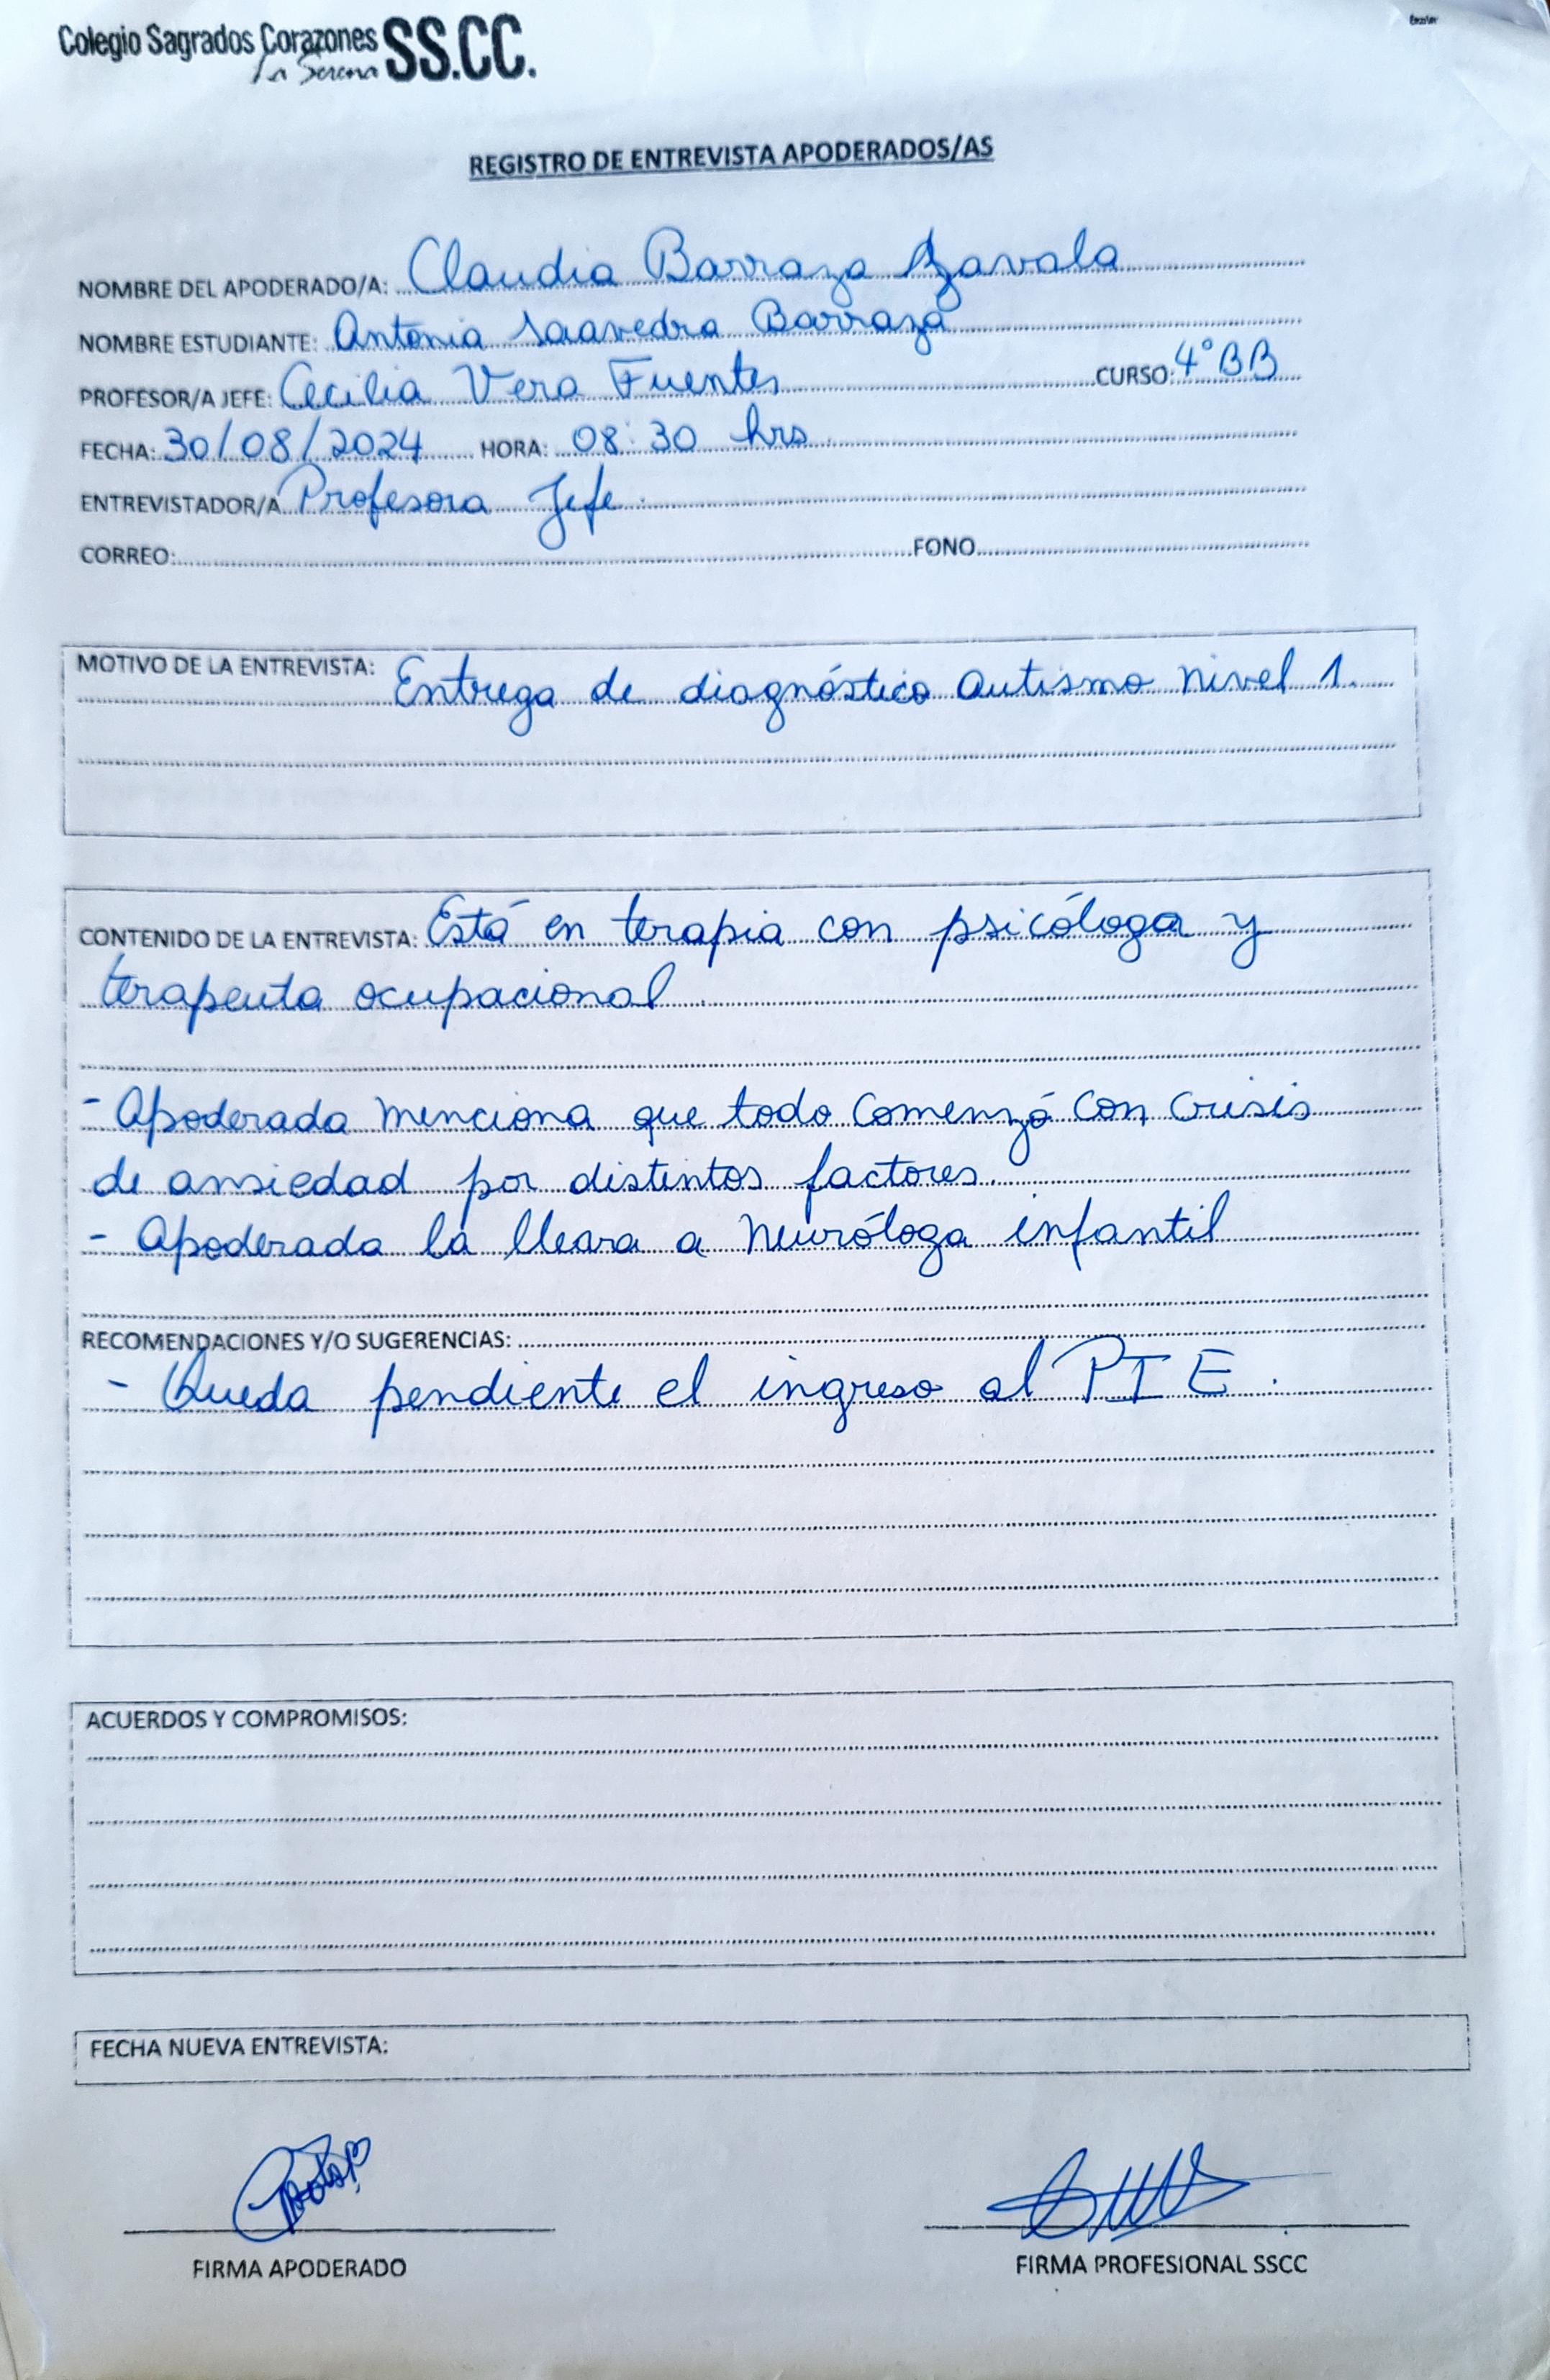 Colegio Sagrados Corazones SS.CC.
La Serena
REGISTRO DE ENTREVISTA APODERADOS/AS
NOMBRE DEL APODERADO/A: Claudia Barraza Zavala
NOMBRE ESTUDIANTE: Antonia Saavedra Barraza
PROFESOR/A JEFE: Cecilia Vera Fuentes CURSO: 4° BB
FECHA: 30/08/2024 HORA: 08:30 hrs.
ENTREVISTADOR/A Profesora Jefe.
CORREO: FONO
MOTIVO DE LA ENTREVISTA: Entrega de diagnóstico Autismo Nivel 1.
CONTENIDO DE LA ENTREVISTA: Está en terapia con psicóloga y
terapeuta ocupacional.
- Apoderada menciona que todo comenzó con crisis
de ansiedad por distintos factores.
- Apoderada la lleara a Neuróloga infantil
RECOMENDACIONES Y/O SUGERENCIAS:
- Queda pendiente el ingreso al PIE.
ACUERDOS Y COMPROMISOS:
FECHA NUEVA ENTREVISTA:
FIRMA APODERADO FIRMA PROFESIONAL SSCC